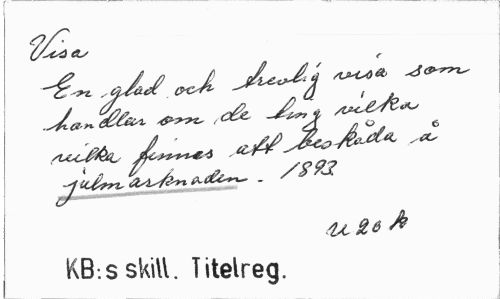 Visa
En glad och trevlig visa som
handlar om de ting vilka
vilka finnes att beskåda å
julmarknaden. 1893
U 20 k
KB:s skill. Titelreg.